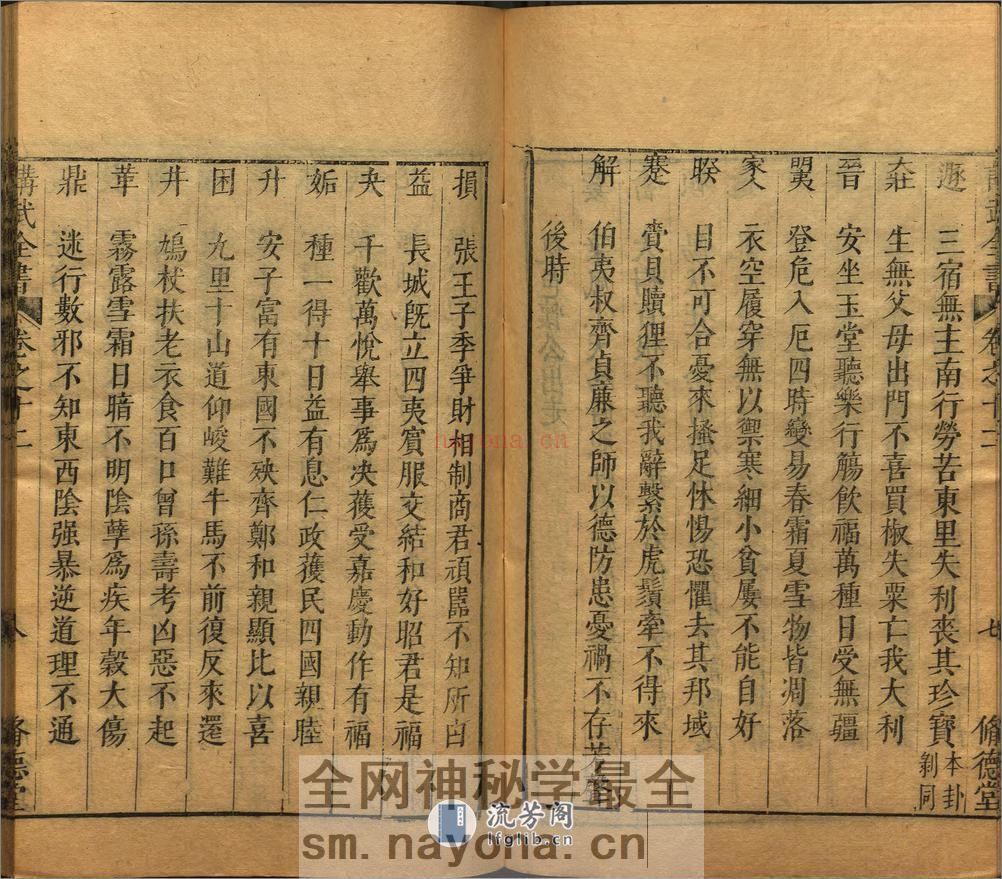 講武全書 卷之十二 七 脩德堂
遯 三宿無主南行勞苦東里失利喪其珍寶本卦剝同
大壯 生無父母出門不喜買椒失栗亡我大利
晉 安坐玉堂聽樂行觴飲福萬種日受無疆
明夷 登危入厄四時變易春霜夏雪物皆凋落
家人 衣空履穿無以禦寒細小貧屢不能自好
睽 目不可合憂來搔足怵惕恐懼去其邦域
蹇 賫貝贖狸不聽我辭繫於虎鬚牽不得來
解 伯夷叔齊貞廉之師以德防患憂禍不存芳聲
後時
損 張王子季爭財相制商君頑嚚不知所由
益 長城既立四夷賓服交結和好昭君是福
夬 千歡萬悅舉事為決獲受嘉慶動作有福
姤 種一得十日益有息仁政獲民四國親睦
升 安子富有東國不殃齊鄭和親顯比以喜
困 九里十山道仰峻難牛馬不前復反來還
井 鳩杖扶老衣食百口曾孫壽考凶惡不起
革 霧露雪霜日暗不明陰孽為疾年穀大傷
鼎 迷行數邪不知東西陰强暴逆道理不通
講武全書 卷之十二 八 脩德堂
nayona.cn
全网神秘学最全
流芳阁
lfglib.cn
sm.nayona.cn